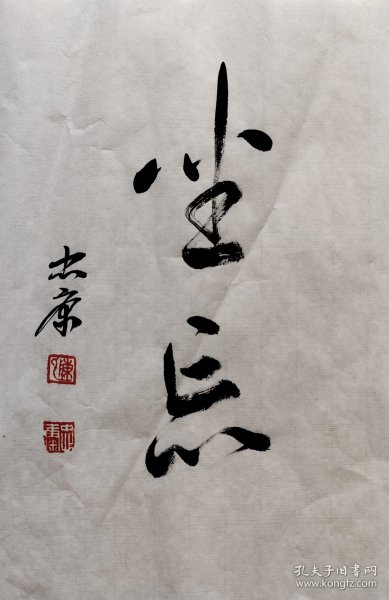 坐忘
忠康
孔夫子旧书网
www.kongfz.com